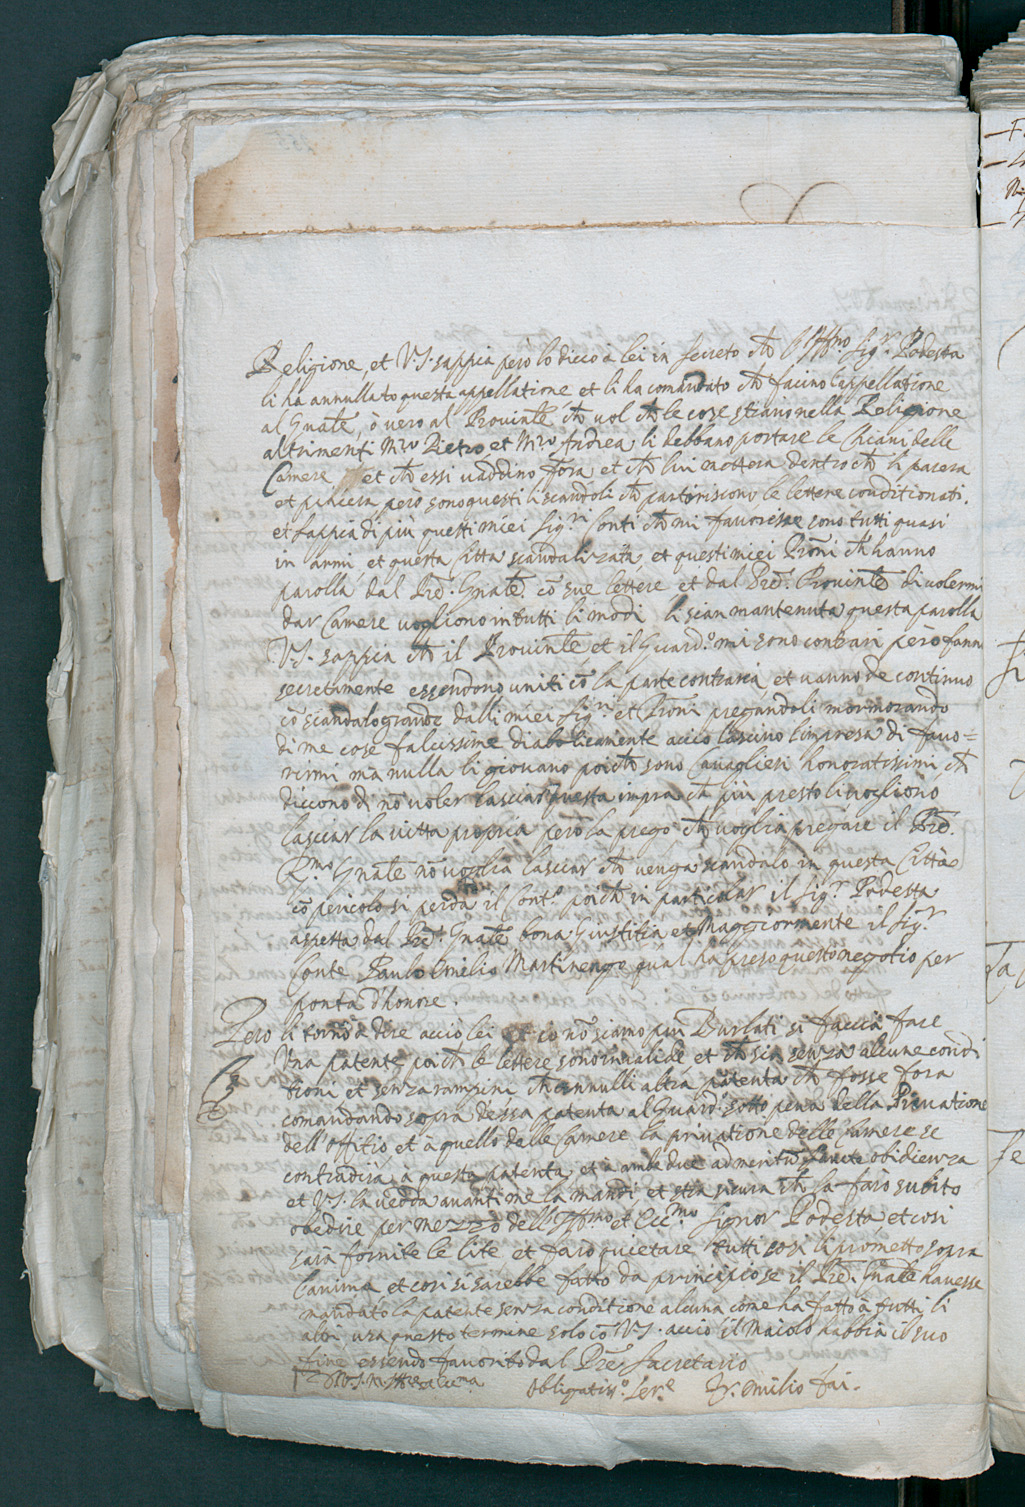 Religione, et V.S. sappia però lo dicco à lei in secreto ch̃ l'Ill.mo Sig.r Podesta
li ha annullato questa appellatione et li ha comandato ch̃ facino l'appellatione
al Gñale, ò vero al Prouinc̃le ch̃ vol ch̃ le cose stiano nella Religione
altrimenti M.ro Pietro et M.ro Andrea li debbano portare le chiaui delle
Camere et ch̃ essi uaddino fora et ch̃ lui mettera dentro ch̃ li parera
et piacera però sono questi li scandoli ch̃ partoriscono le lettere conditionati.
et sappia di più questi miei Sig.ri Conti ch̃ mi favorisse sono tutti quasi
in armi, et questa Citta scandalizata, et questi miei Pr̃oni ch̃ hanno
parolla dal Pr̃e. Gñale cõ sue lettere et dal Pr̃e. Prouinc̃le di uolermi
dar Camere uogliono in tutti li modi li sia mantenuta questa parolla
V.S. sappia ch̃ il Prouinc̃le et il Guard.o mi sono contrari però fanno
secretamente essendono uniti cõ la parte contraria et uanno de continuo
cõ scandalo grande dalli miei Sig.ri et Pr̃oni pregandoli mormorando
di me cose falcissime diabolicamente acciò lascino l'impresa di fauo=
rirmi mà nulla li giouano poich̃ sono Cauaglieri honoratissimi, ch̃
diccono di nõ uoler lasciar questa impra ch̃ più presto li uogliono
lasciar la uitta propria però la prego ch̃ uoglia pregare il Pr̃e.
R.mo Gñale nõ uoglia lasciar ch̃ venga scandalo in questa Città
cõ pericolo si perda il Cont.o poich̃ in particolar il Sig.r Podesta
aspetta dal Pr̃e. Gñale bona Giustitia et Maggiormente il Sig.r
Conte Paulo Emilio Martinengo qual ha preso questo negotio per
ponta d'honore.
Però li torno à dire acciò lei et io nõ siamo più Burlati si faccia fare
Vna patente, poich̃ le lettere sono inualide, et ch̃ sia senza alcune condi
tioni et senza rampini ch̃ annulli altra patenta ch̃ fosse fora
comandando sopra dessa patenta al Guard.o sotto pena della Priuatione
dell'offitio, et à quello delle Camere la priuatione delle Camere se
contradira à questa patenta, et à ambe due ad meritũ sancte obidienza
et V.S. la uedda auanti me la mandi et stia sicura ch̃ la farò subito
obedire per mezzo dell'Ill.mo et Ecc.mo Signor Podesta, et così
sarà fornite le lite et farò quietare tutti così li prometto sopra
l'anima et così si sarebbe fatto da principio se il Pr̃e. Gñale hauesse
mandato la patente senza conditione alcuna come ha fatto à tutti li
altri uza questo termine solo cõ V.S. acciò il Maiolo habbia il suo
fine essendo favorito dal Pr̃e. Sacretario
Obligatiss.o Ser.e Fr. Emilio